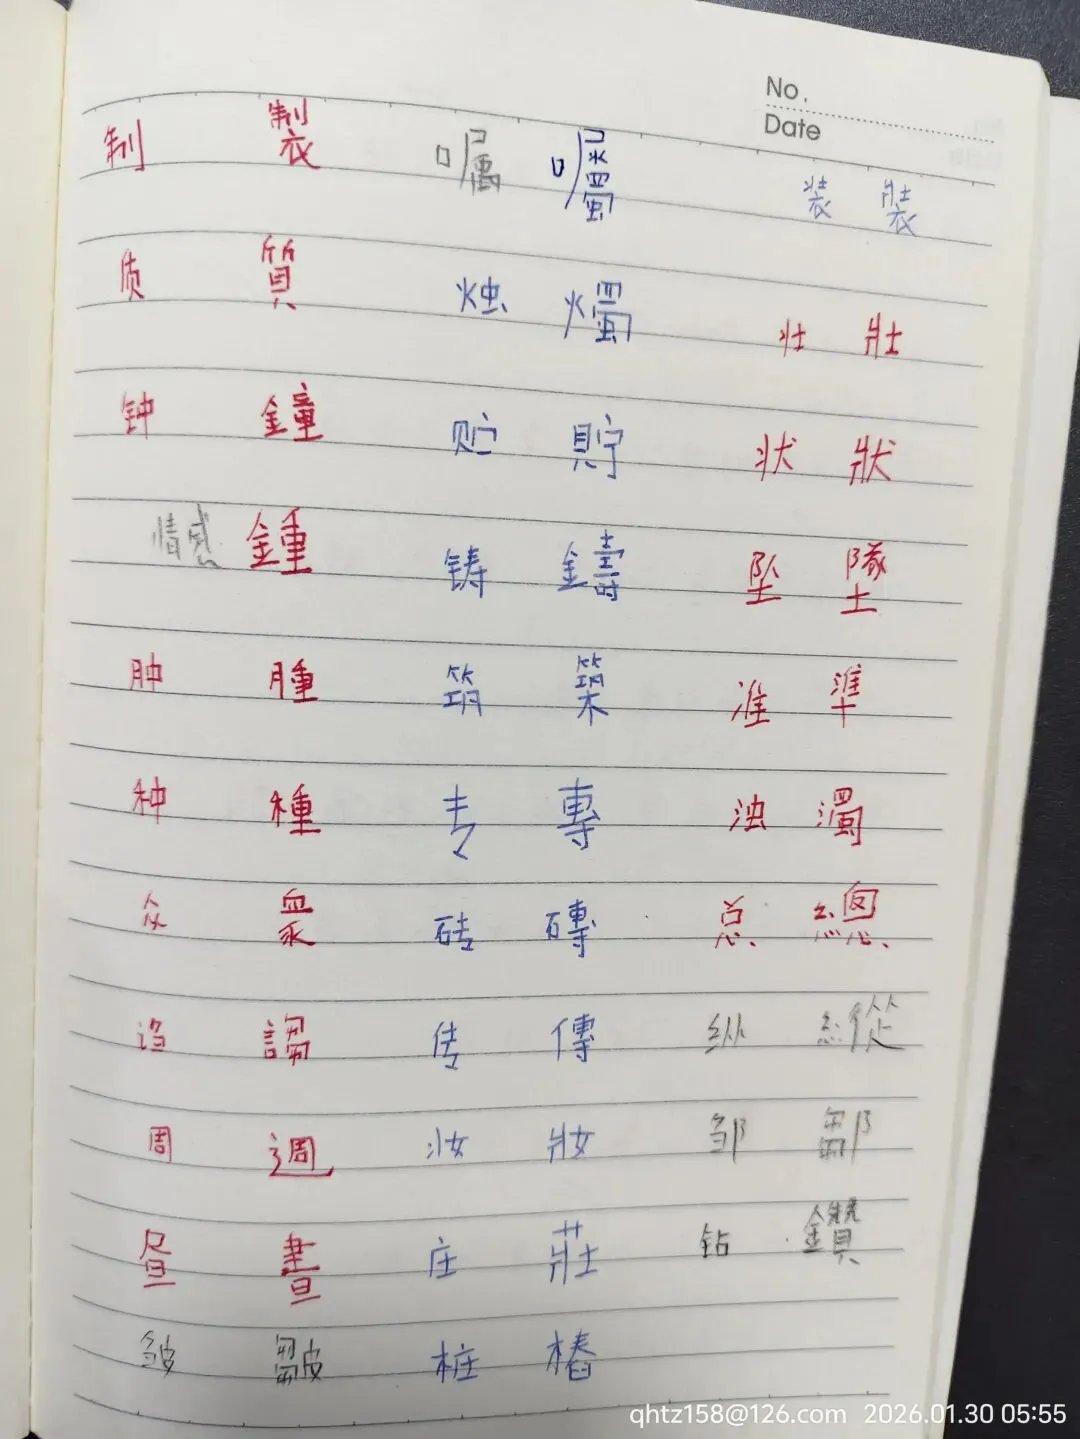 No.
Date
制 製 嘱 囑 装 裝
质 質 烛 燭 壮 壯
钟 鐘 贮 貯 状 狀
情感 鍾 铸 鑄 坠 墜
肿 腫 筑 築 准 準
种 種 专 專 浊 濁
众 眾 砖 磚 总 總
诌 謅 传 傳 纵 縱
周 週 妆 妝 邹 鄒
昼 晝 庄 莊 钻 鑽
皱 皺 桩 樁
qhtz158@126.com 2026.01.30 05:55